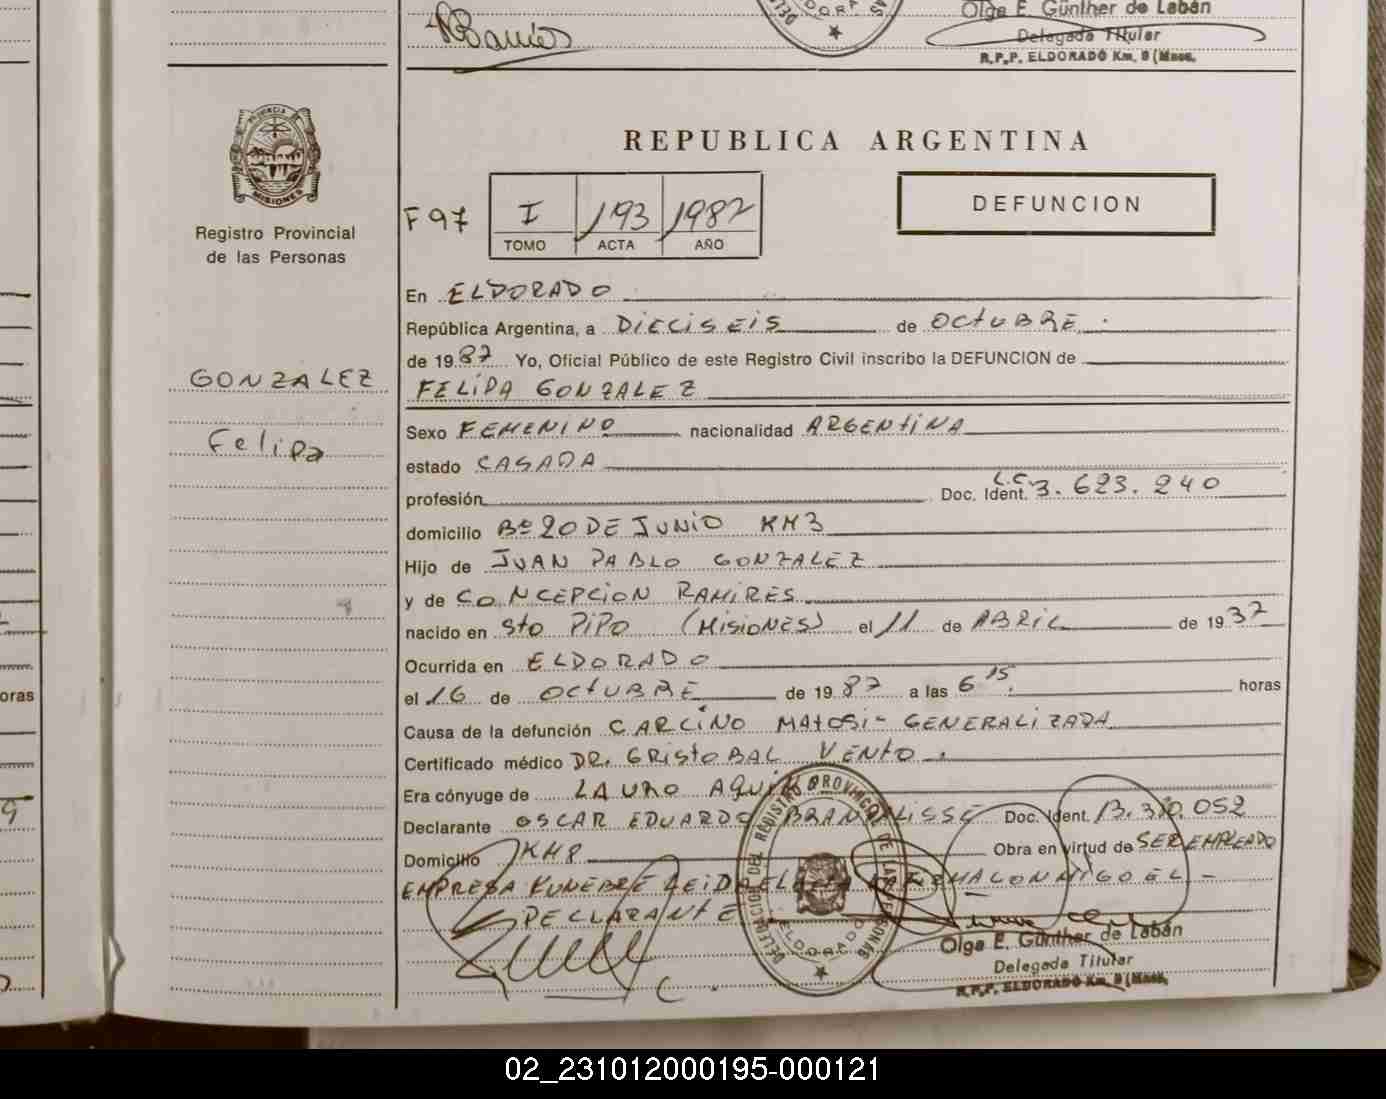 Olga E. Günther de Labán
Delegada Titular
R.P.P. ELDORADO Km. 9 (Mnes.
PROVINCIA DE
MISIONES
Registro Provincial
de las Personas
GONZALEZ
Felipa
REPUBLICA ARGENTINA
F 97
I 193 1987
TOMO ACTA AÑO
DEFUNCION
En ELDORADO
República Argentina, a DIECISEIS de OCTUBRE
de 1987 Yo, Oficial Público de este Registro Civil inscribo la DEFUNCION de
FELIPA GONZALEZ
Sexo FEMENINO nacionalidad ARGENTINA
estado CASADA
profesión Doc. Ident. L.C. 3.623.240
domicilio Bº 20 DE JUNIO KM3
Hijo de JUAN PABLO GONZALEZ
y de CONCEPCION RAMIRES
nacido en Sto PIPO (MISIONES) el 11 de ABRIL de 1937
Ocurrida en ELDORADO
el 16 de OCTUBRE de 1987 a las 6 15 horas
Causa de la defunción CARCINO MATOSI- GENERALIZADA
Certificado médico DR. CRISTOBAL VENTO.
Era cónyuge de LAURO AQUINO
Declarante OSCAR EDUARDO BRANALISSE Doc. Ident. 13.310.052
Domicilio KM8 Obra en virtud de SER EMPLEADO
EMPRESA FUNEBRE FIRMA CONMIGO EL -
DECLARANTE
DELEGACION DEL REGISTRO PROVINCIAL DE LAS PERSONAS
ELDORADO
Olga E. Günther de Labán
Delegada Titular
R.P.P. ELDORADO Km. 9 (Mnes.
oras
02_231012000195-000121